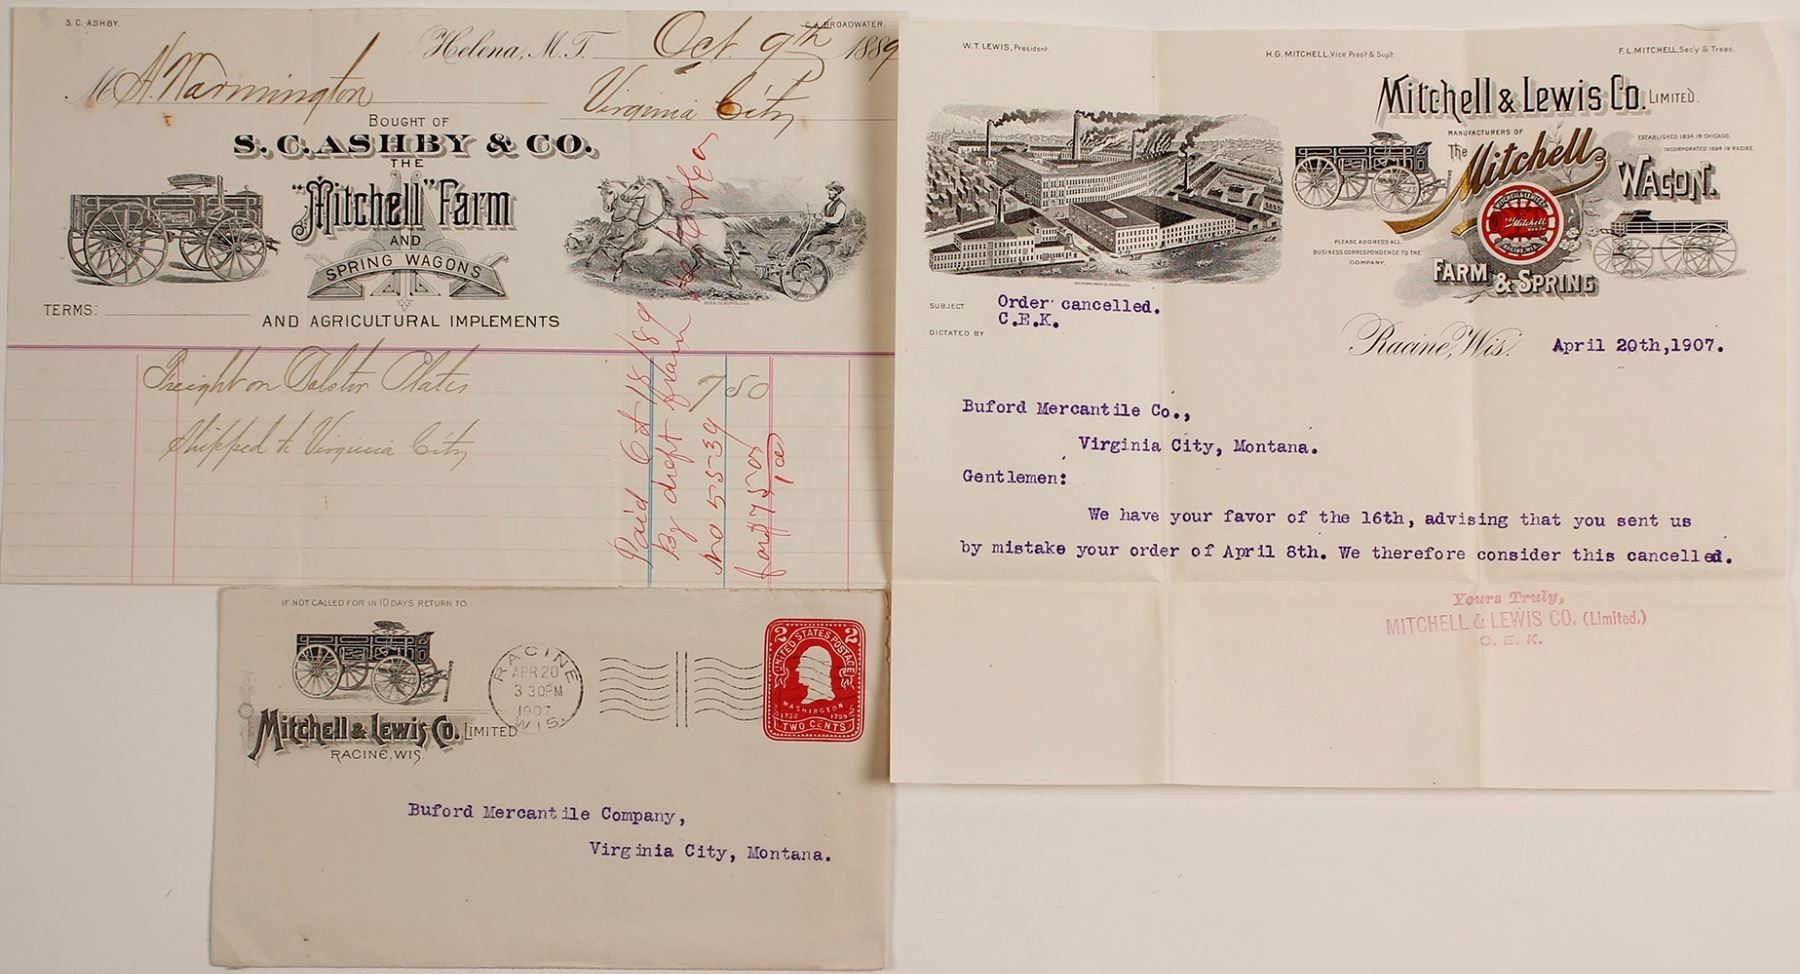 S. C. ASHBY.
C. A. BROADWATER.
Helena, M. T. Oct. 9th 1889
M A. Warmington
Virginia City
BOUGHT OF
S. C. ASHBY & CO.
THE
"Mitchell" Farm
AND
SPRING WAGONS
TERMS:
AND AGRICULTURAL IMPLEMENTS
Freight on Bolster Plates
7 50
Shipped to Virginia City
Paid Oct 18/89
By draft
No 5539
for $75.05
W. T. LEWIS, President.
H. G. MITCHELL, Vice Pres't & Sup't.
F. L. MITCHELL, Sec'y & Treas.
Mitchell & Lewis Co. LIMITED.
MANUFACTURERS OF
The Mitchell
ESTABLISHED 1834 IN CHICAGO.
INCORPORATED 1884 IN RACINE.
WAGON.
The Mitchell
PLEASE ADDRESS ALL
BUSINESS CORRESPONDENCE TO THE
COMPANY.
FARM & SPRING
SUBJECT Order cancelled.
C.E.K.
DICTATED BY
Racine, Wis. April 20th,1907.
Buford Mercantile Co.,
Virginia City, Montana.
Gentlemen:
We have your favor of the 16th, advising that you sent us
by mistake your order of April 8th. We therefore consider this cancelled.
Yours Truly,
MITCHELL & LEWIS CO. (Limited.)
C. E. K.
IF NOT CALLED FOR IN 10 DAYS RETURN TO
Mitchell & Lewis Co. LIMITED
RACINE, WIS.
RACINE
APR 20
3 30PM
1907
WIS.
2 2
UNITED STATES POSTAGE
WASHINGTON
1732 1799
TWO CENTS
Buford Mercantile Company,
Virginia City, Montana.